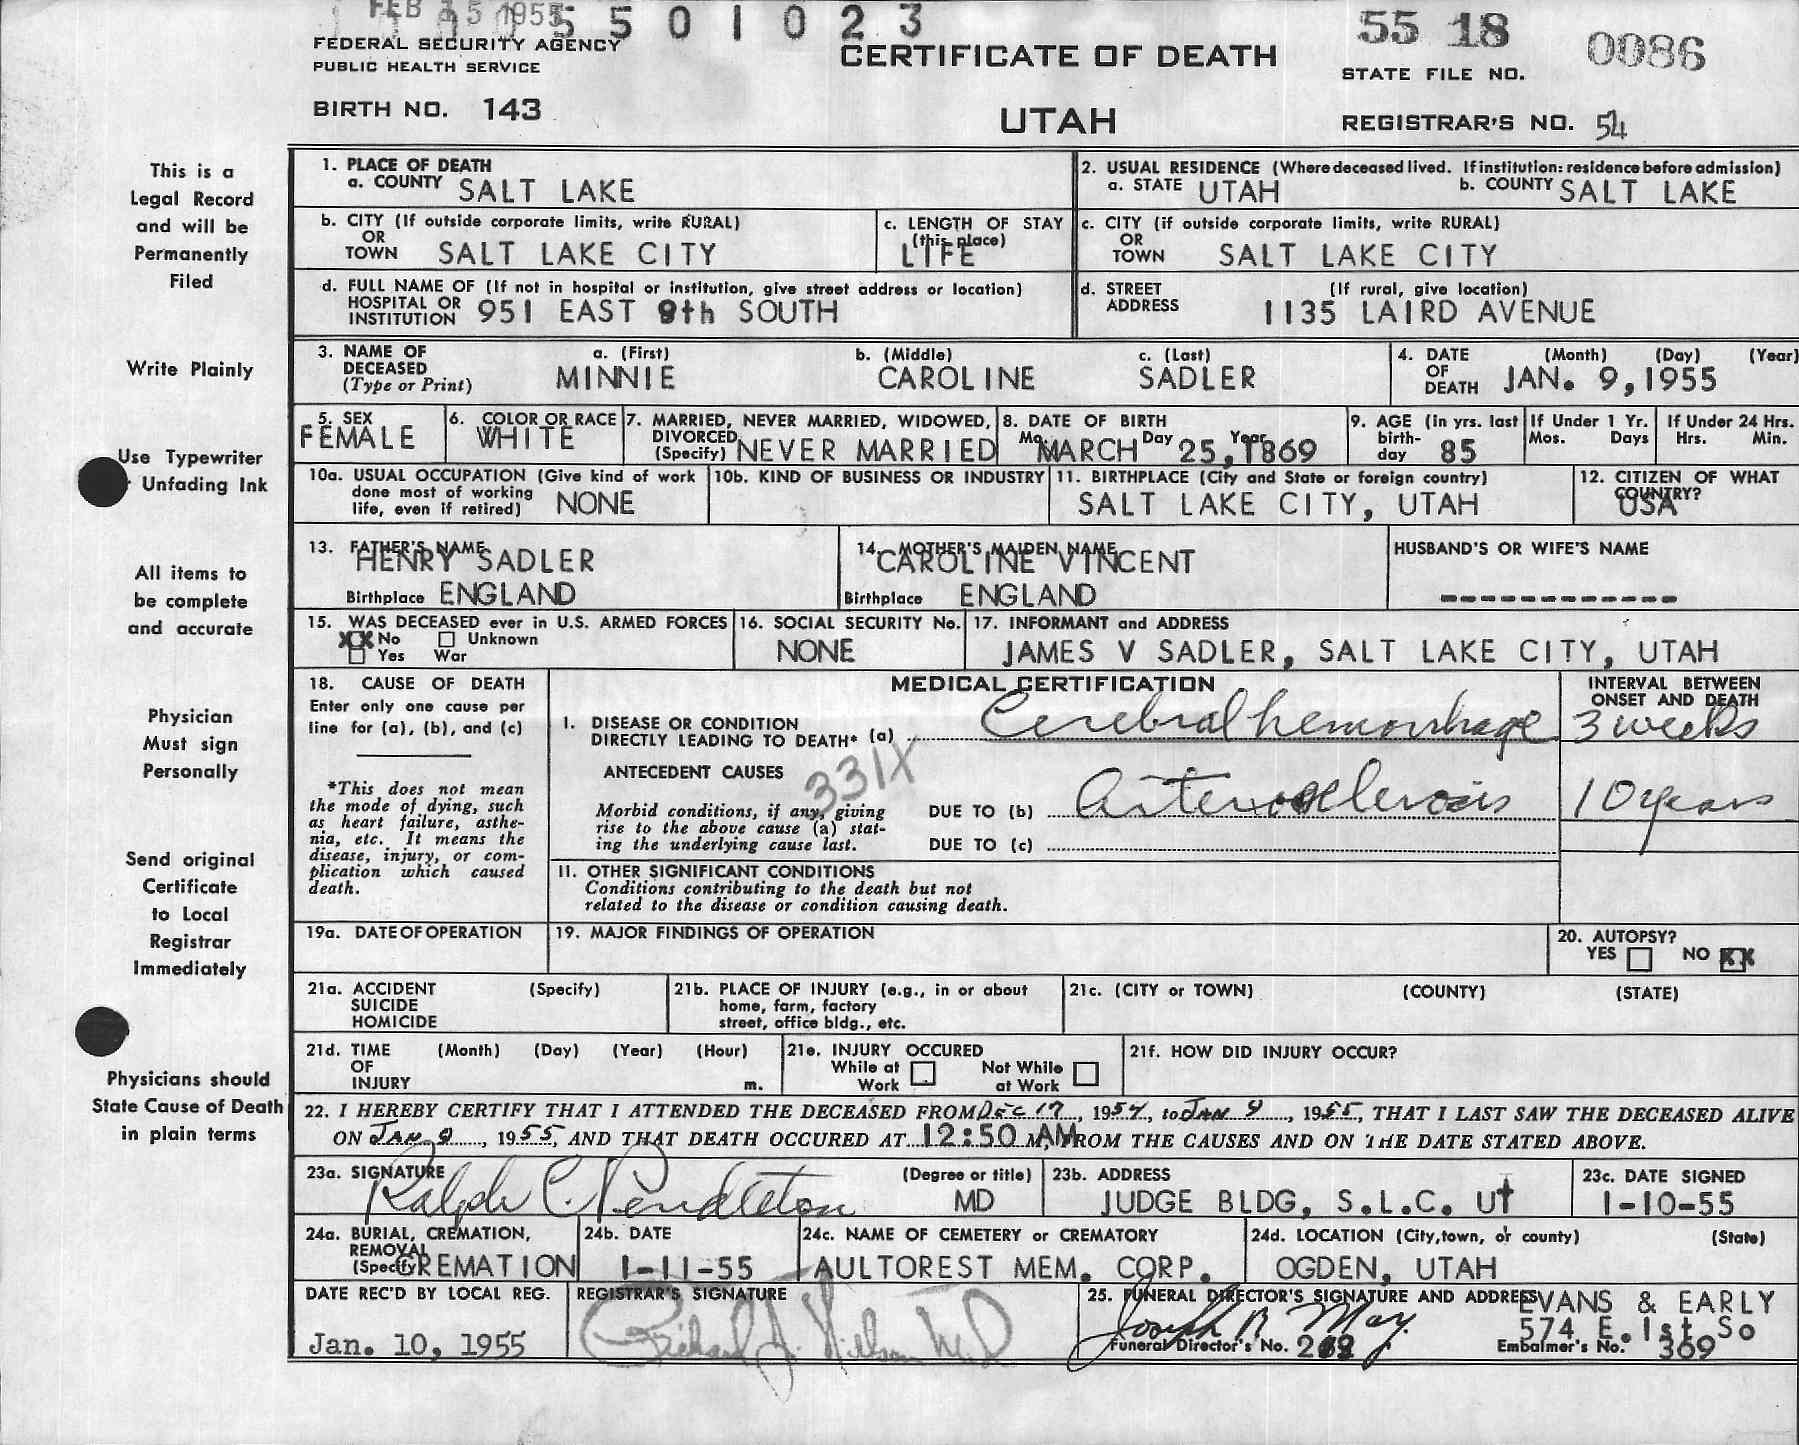 FEB 15 1955
5 5 0 1 0 2 3
FEDERAL SECURITY AGENCY
PUBLIC HEALTH SERVICE
BIRTH NO. 143
CERTIFICATE OF DEATH
UTAH
55 18 0086
STATE FILE NO.
REGISTRAR'S NO. 54
This is a
Legal Record
and will be
Permanently
Filed
Write Plainly
Use Typewriter
Unfading Ink
All items to
be complete
and accurate
Physician
Must sign
Personally
Send original
Certificate
to Local
Registrar
Immediately
Physicians should
State Cause of Death
in plain terms
1. PLACE OF DEATH
a. COUNTY SALT LAKE
2. USUAL RESIDENCE (Where deceased lived. If institution: residence before admission)
a. STATE UTAH b. COUNTY SALT LAKE
b. CITY (If outside corporate limits, write RURAL)
OR
TOWN SALT LAKE CITY
c. LENGTH OF STAY
(this place)
LIFE
c. CITY (if outside corporate limits, write RURAL)
OR
TOWN SALT LAKE CITY
d. FULL NAME OF (If not in hospital or institution, give street address or location)
HOSPITAL OR
INSTITUTION 951 EAST 9th SOUTH
d. STREET (If rural, give location)
ADDRESS 1135 LAIRD AVENUE
3. NAME OF a. (First) b. (Middle) c. (Last)
DECEASED
(Type or Print) MINNIE CAROLINE SADLER
4. DATE (Month) (Day) (Year)
OF
DEATH JAN. 9, 1955
5. SEX
FEMALE
6. COLOR OR RACE
WHITE
7. MARRIED, NEVER MARRIED, WIDOWED,
DIVORCED
(Specify) NEVER MARRIED
8. DATE OF BIRTH
Mo. Day Year
MARCH 25, 1869
9. AGE (in yrs. last
birth-
day 85
If Under 1 Yr.
Mos. Days
If Under 24 Hrs.
Hrs. Min.
10a. USUAL OCCUPATION (Give kind of work
done most of working
life, even if retired) NONE
10b. KIND OF BUSINESS OR INDUSTRY
11. BIRTHPLACE (City and State or foreign country)
SALT LAKE CITY, UTAH
12. CITIZEN OF WHAT
COUNTRY?
USA
13. FATHER'S NAME
HENRY SADLER
Birthplace ENGLAND
14. MOTHER'S MAIDEN NAME
CAROLINE VINCENT
Birthplace ENGLAND
HUSBAND'S OR WIFE'S NAME
------------
15. WAS DECEASED ever in U.S. ARMED FORCES
XX No Unknown
Yes War
16. SOCIAL SECURITY No.
NONE
17. INFORMANT and ADDRESS
JAMES V SADLER, SALT LAKE CITY, UTAH
18. CAUSE OF DEATH
Enter only one cause per
line for (a), (b), and (c)
*This does not mean
the mode of dying, such
as heart failure, asthe-
nia, etc. It means the
disease, injury, or com-
plication which caused
death.
MEDICAL CERTIFICATION
INTERVAL BETWEEN
ONSET AND DEATH
I. DISEASE OR CONDITION
DIRECTLY LEADING TO DEATH* (a) Cerebral hemorrhage 3 weeks
ANTECEDENT CAUSES
331X
Morbid conditions, if any, giving
rise to the above cause (a) stat-
ing the underlying cause last.
DUE TO (b) Arteriosclerosis 10 years
DUE TO (c)
II. OTHER SIGNIFICANT CONDITIONS
Conditions contributing to the death but not
related to the disease or condition causing death.
19a. DATE OF OPERATION
19. MAJOR FINDINGS OF OPERATION
20. AUTOPSY?
YES NO XX
21a. ACCIDENT (Specify)
SUICIDE
HOMICIDE
21b. PLACE OF INJURY (e.g., in or about
home, farm, factory
street, office bldg., etc.
21c. (CITY or TOWN) (COUNTY) (STATE)
21d. TIME (Month) (Day) (Year) (Hour)
OF
INJURY m.
21e. INJURY OCCURED
While at Not While
Work at Work
21f. HOW DID INJURY OCCUR?
22. I HEREBY CERTIFY THAT I ATTENDED THE DECEASED FROM Dec 17, 1954, to Jan 9, 1955, THAT I LAST SAW THE DECEASED ALIVE
ON Jan 9, 1955, AND THAT DEATH OCCURED AT 12:50 AM M, FROM THE CAUSES AND ON THE DATE STATED ABOVE.
23a. SIGNATURE (Degree or title)
Ralph C. Pendleton MD
23b. ADDRESS
JUDGE BLDG, S.L.C. Ut
23c. DATE SIGNED
1-10-55
24a. BURIAL, CREMATION,
REMOVAL
(Specify) CREMATION
24b. DATE
1-11-55
24c. NAME OF CEMETERY or CREMATORY
AULTOREST MEM. CORP.
24d. LOCATION (City, town, or county) (State)
OGDEN, UTAH
DATE REC'D BY LOCAL REG.
Jan. 10, 1955
REGISTRAR'S SIGNATURE
Richard J. Nielson M.D
25. FUNERAL DIRECTOR'S SIGNATURE AND ADDRESS EVANS & EARLY
Joseph B May. 574 E. 1st So
Funeral Director's No. Embalmer's No. 369